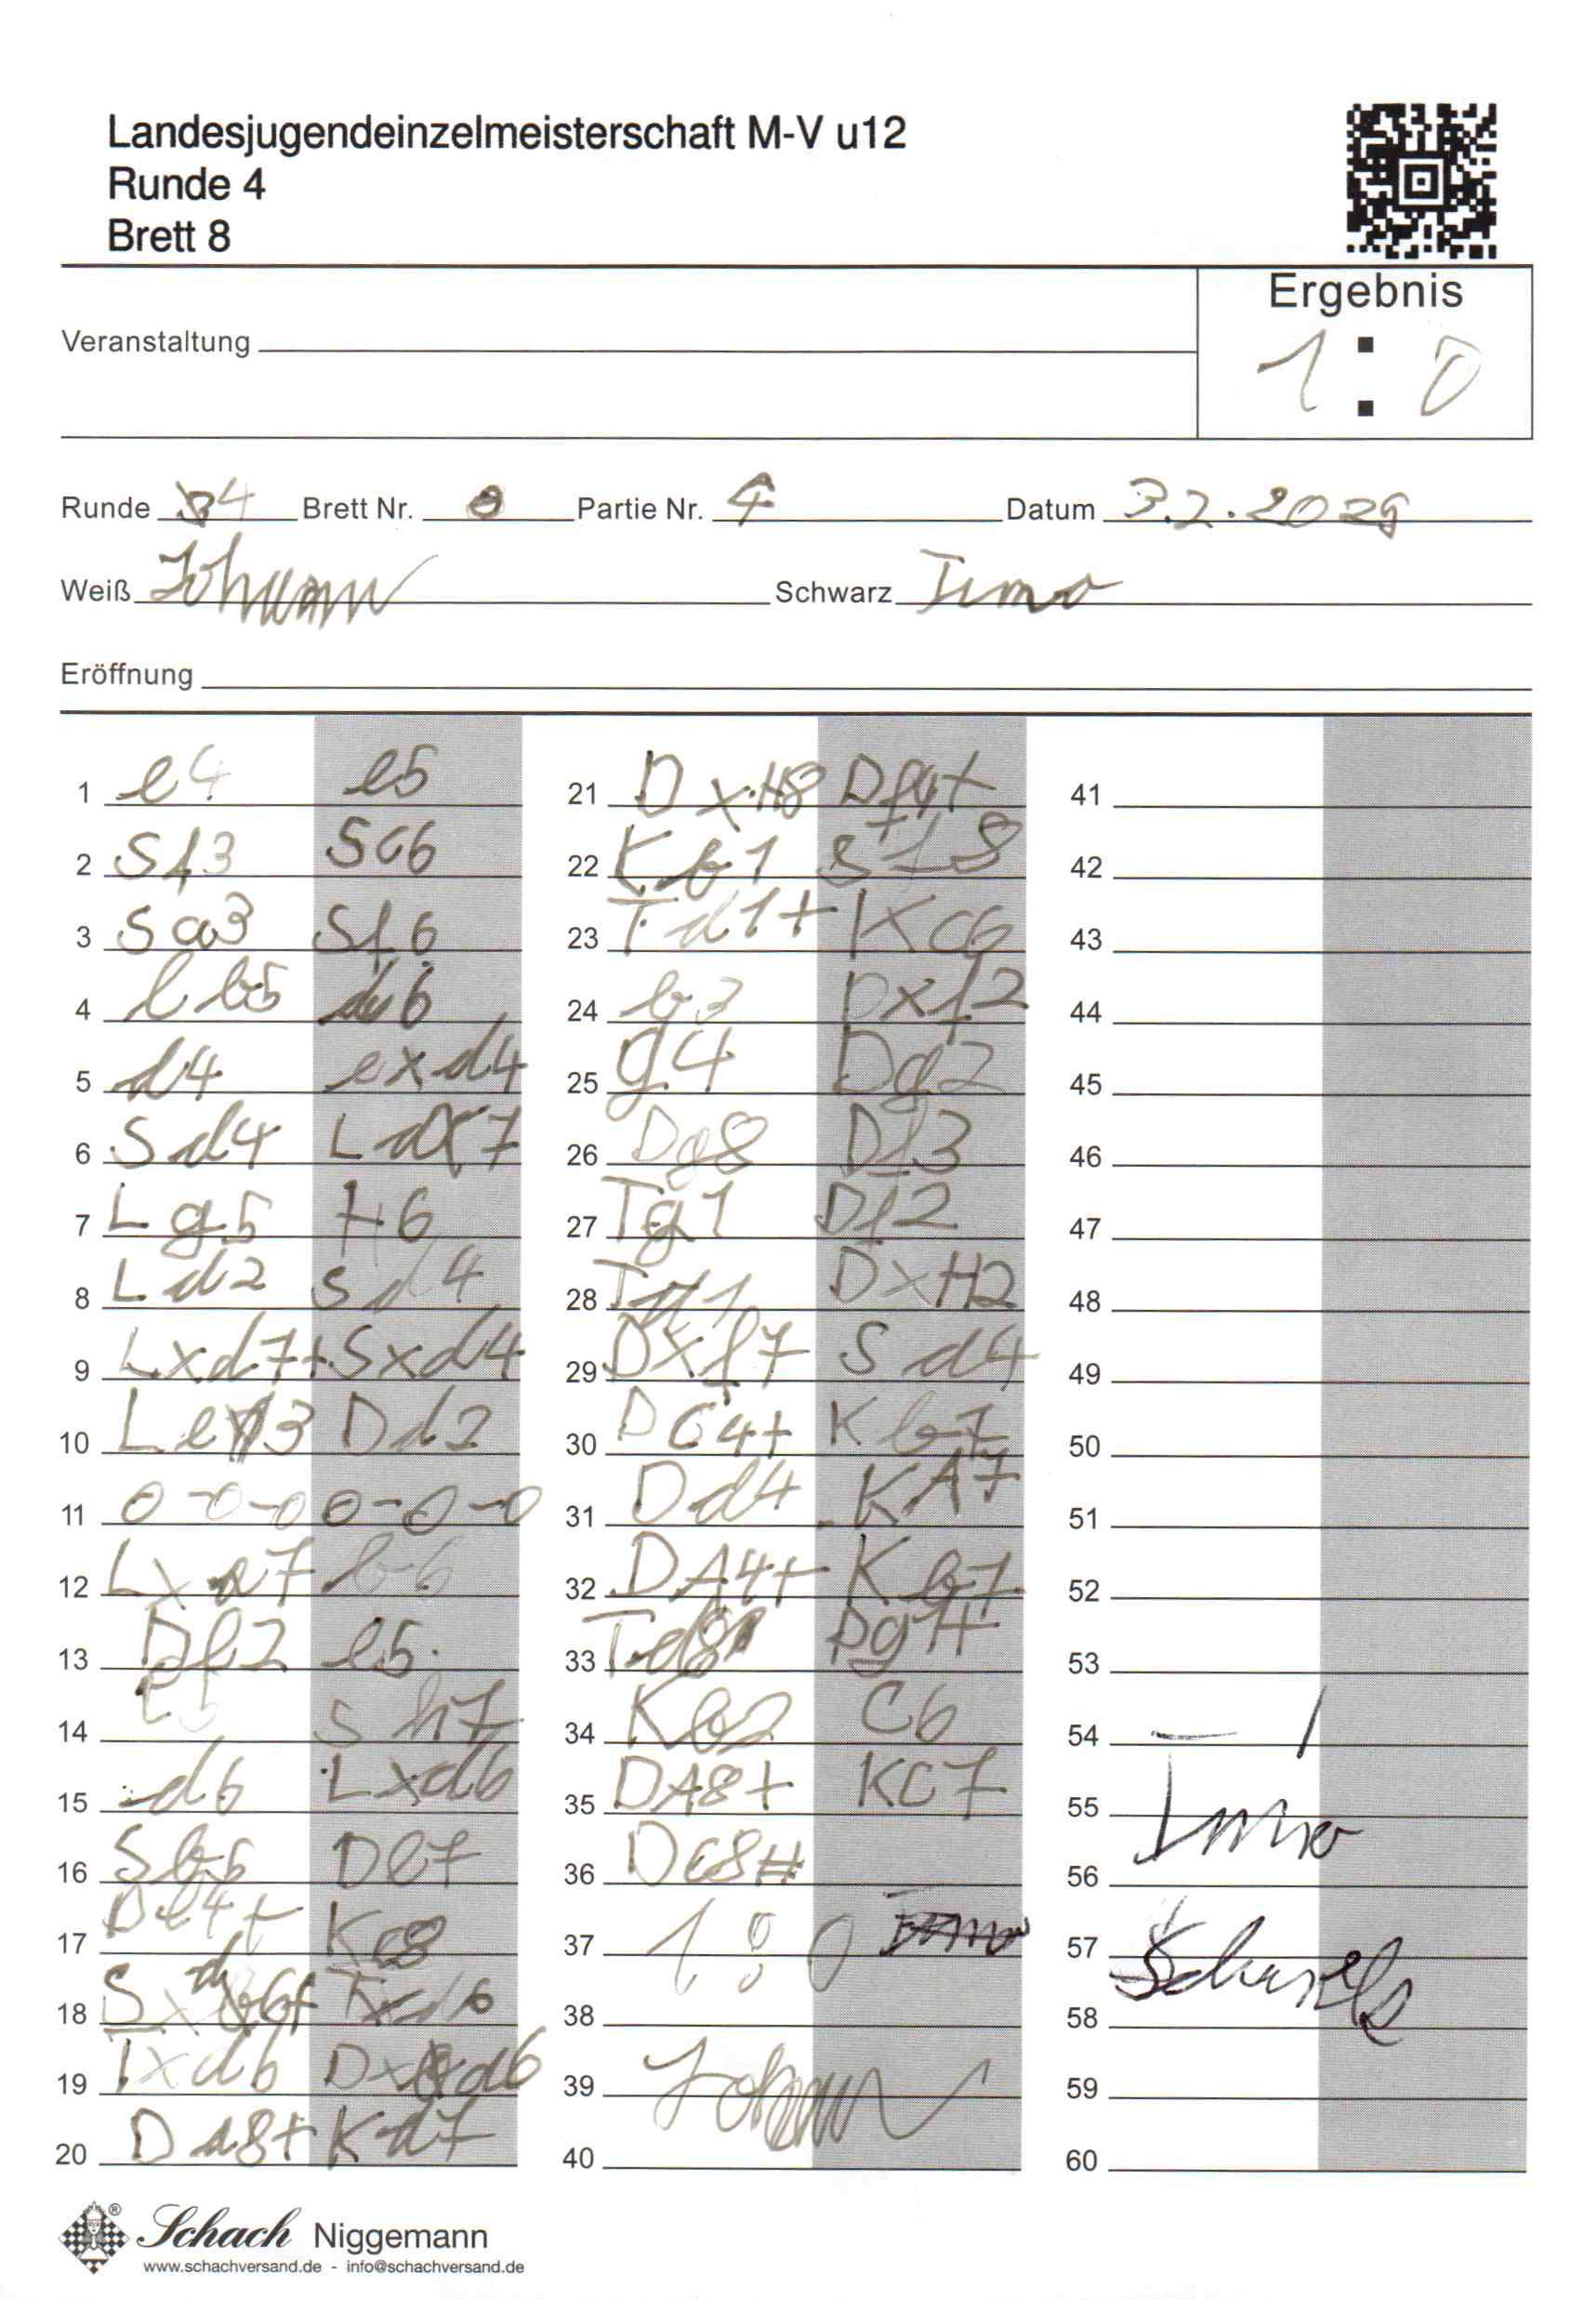 Landesjugendeinzelmeisterschaft M-V u12
Runde 4
Brett 8
Ergebnis
1 : 0
Veranstaltung
Runde 4 Brett Nr. 8 Partie Nr. 4 Datum 3.2.2025
Weiß Johann Schwarz Timo
Eröffnung
1 e4 e5
2 Sf3 Sc6
3 Sa3 Sf6
4 Lb5 d6
5 d4 exd4
6 Sd4 Ld7
7 Lg5 H6
8 Ld2 Sd4
9 Lxd7+ Sxd4
10 Le3 Dd2
11 0-0-0 0-0-0
12 Lxa7 b6
13 Df2 e5
14 Sh7
15 d6 Lxd6
16 Sb5 De7
17 De4+ Kc8
18 Sxd6+ Txd6
19 Txd6 Dxd6
20 Da8+ Kd7
21 DxH8 Df4+
22 Kb1 Sf8
23 Td1+ Kc6
24 b3 Dxf2
25 g4 Dg2
26 Dg8 Df3
27 Tg1 Df2
28 DxH2
29 Dxf7 Sd4
30 DC4+ Kb7
31 Dd4 KA7
32 DA4+ Kb7
33 Td8 Dg1+
34 Kb2 C6
35 DA8+ KC7
36 DC8#
37 1:0
38
39 Johann
40
41
42
43
44
45
46
47
48
49
50
51
52
53
54
55 Timo
56
57
58
59
60
Schach Niggemann
www.schachversand.de - info@schachversand.de